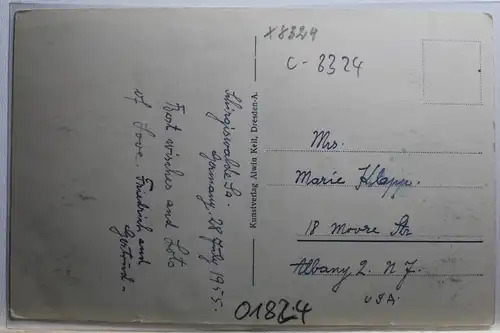 x8329
C-8324
Schirgiswalde Sa.
Germany, 28 July 1955.
Best wishes and Lots
of Love. Friedrich and
Gertrud -
Kunstverlag Alwin Keil, Dresden-A.
Mrs.
Marie Klapp.
18 Moore Str
Albany 2. N. J.
USA.
01824